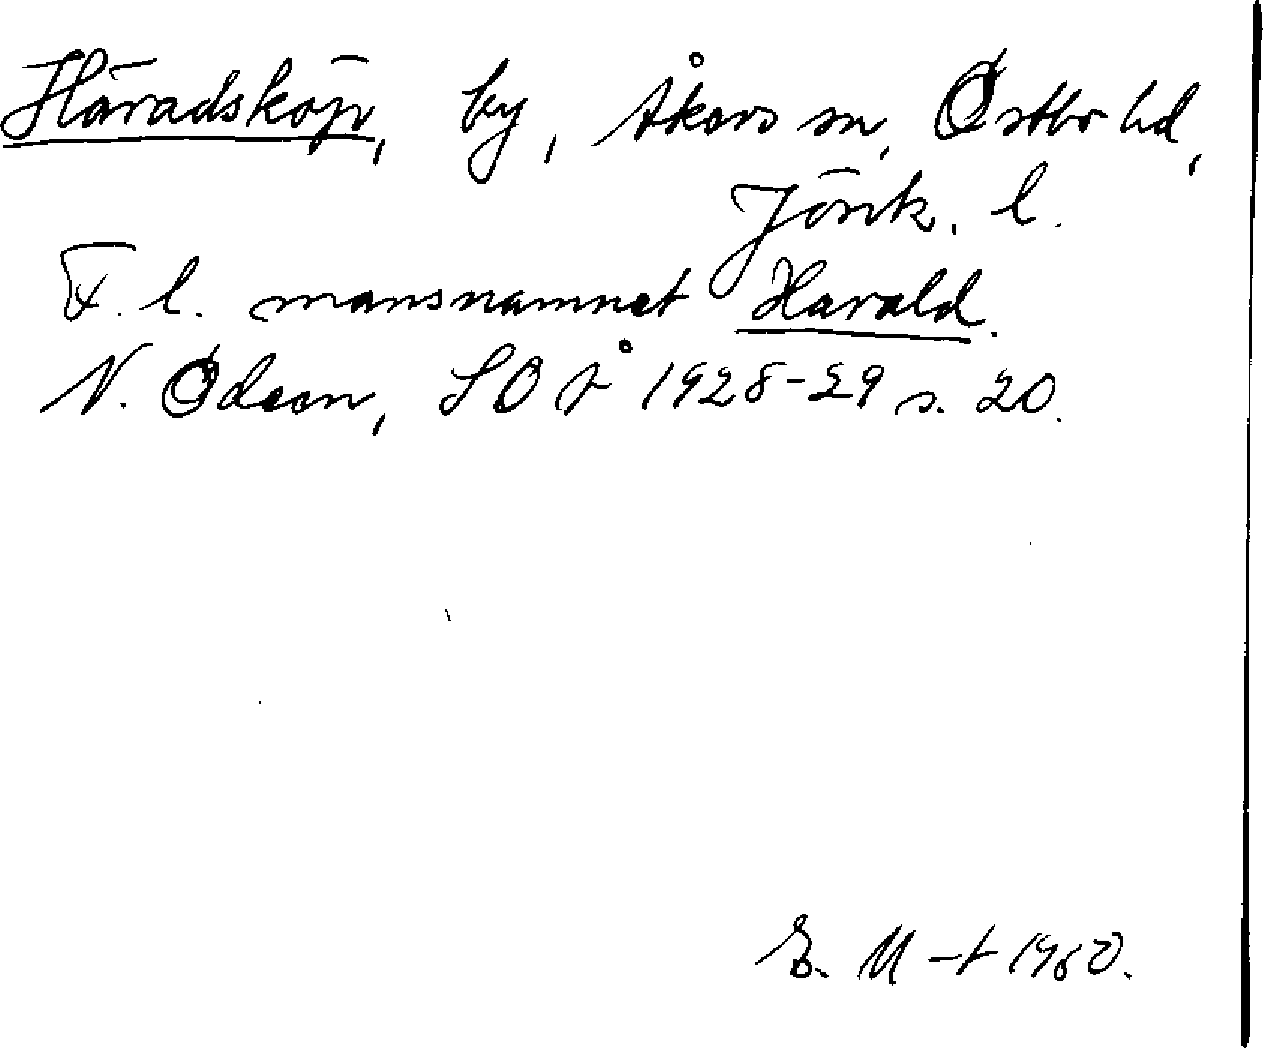 Häradsköp, by, Åkers sn, Östbo hd,
Jönk. l.
F. l. mansnamnet Harald.
N. Ödeen, SOÅ 1928-29 s. 20.
E. M-t 1960.